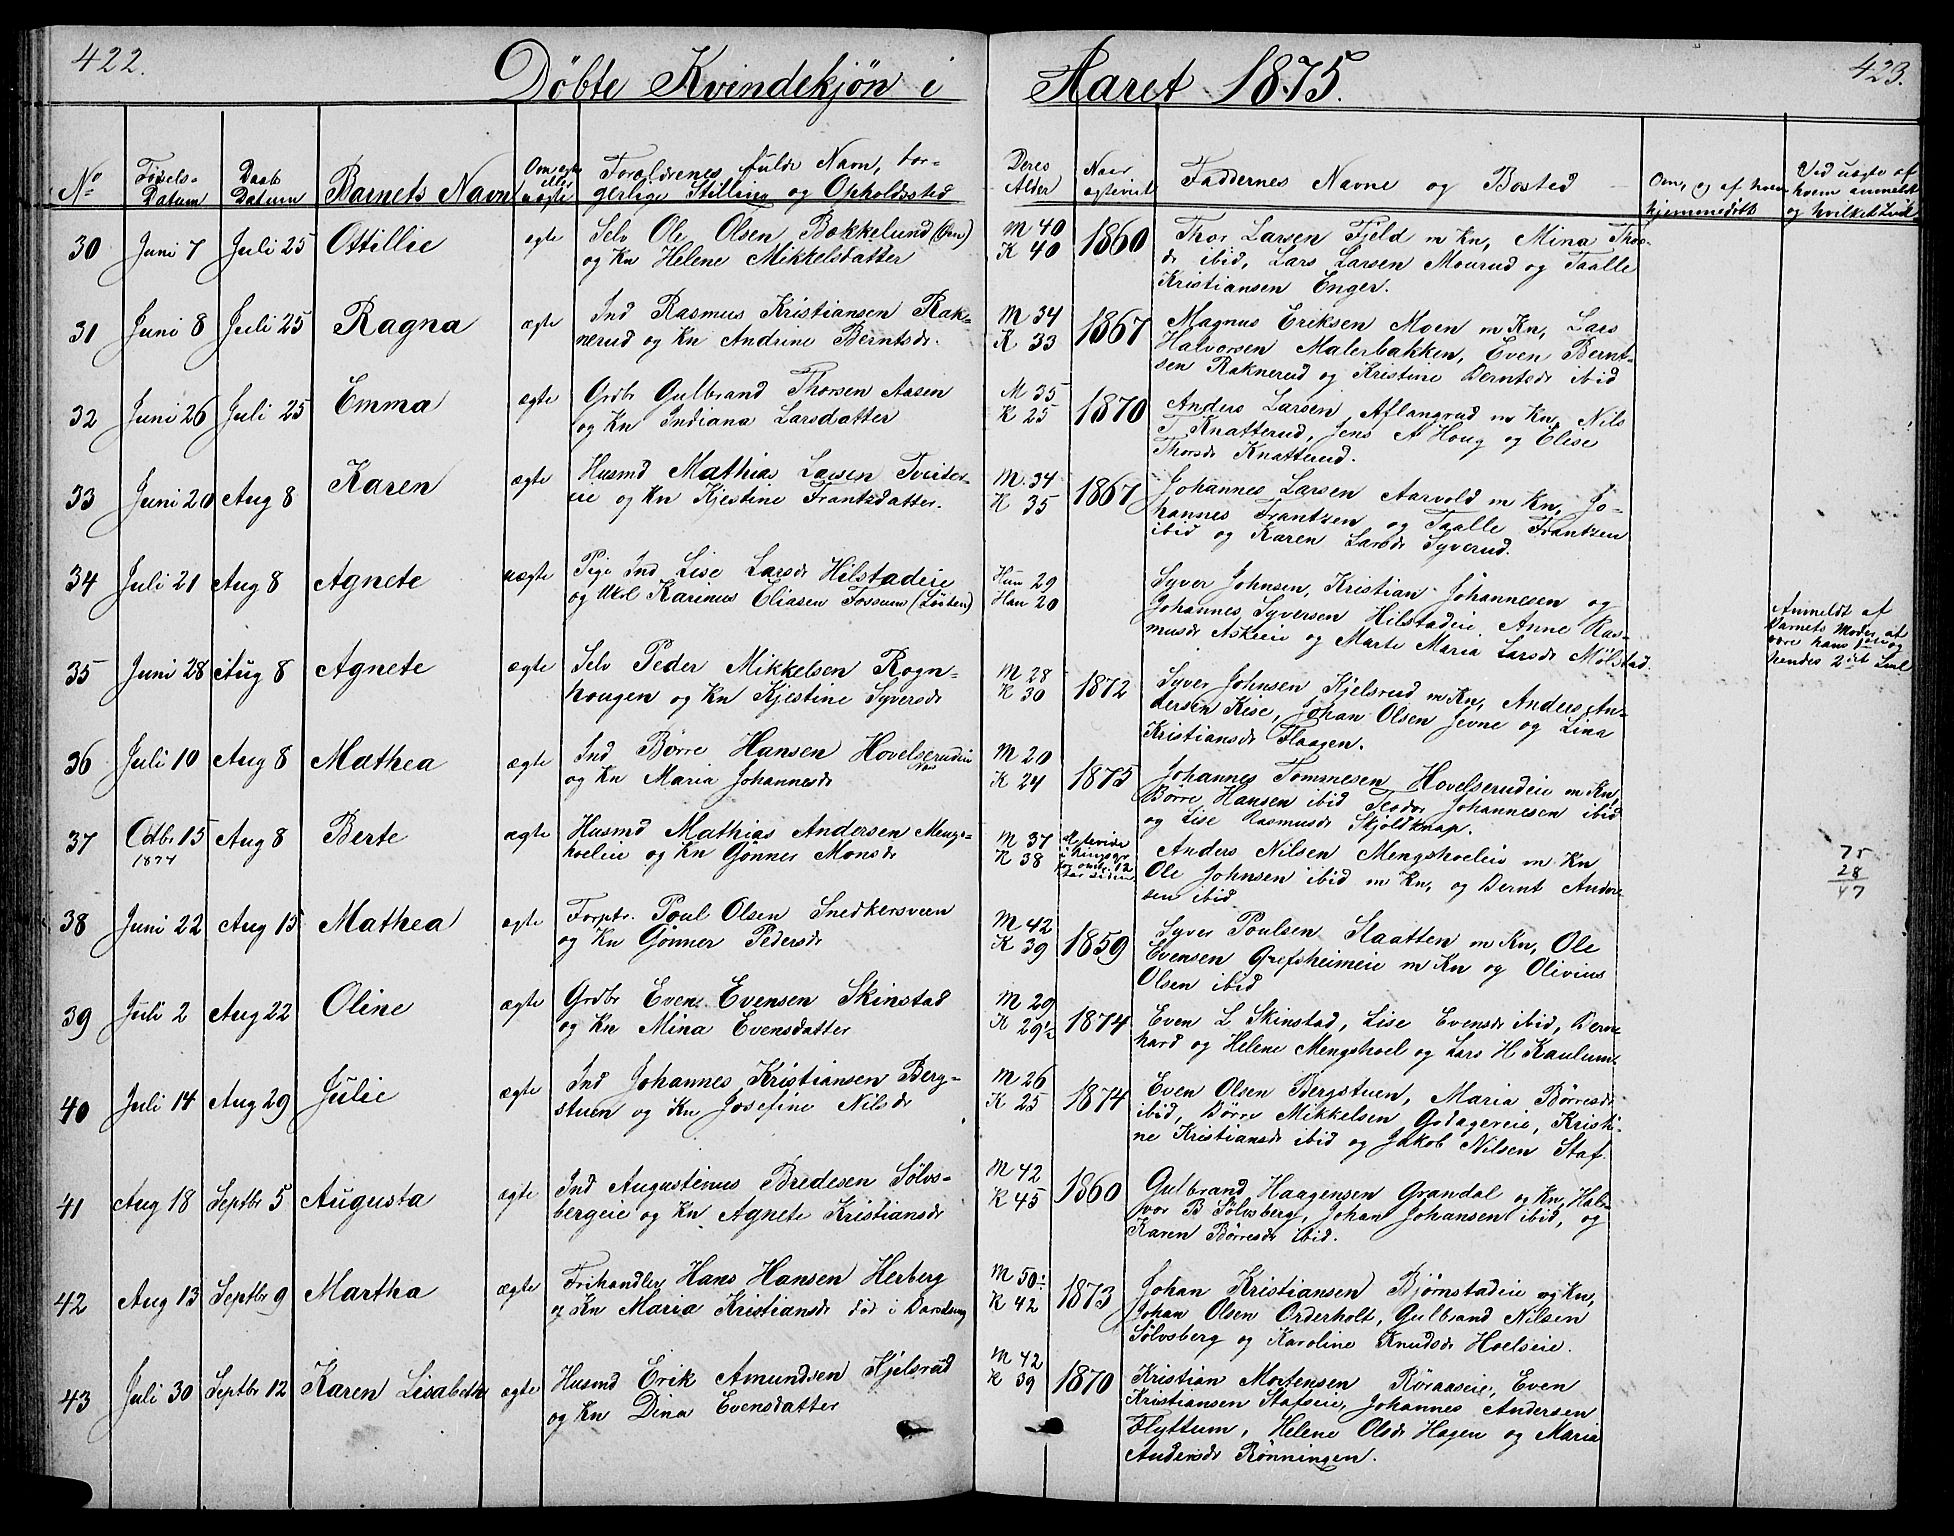 422.
423.
Döbte Kvindekjön i Aaret 1875.
No
Fødsels-Datum
Daabs Datum
Barnets Navn
Om ægte eller uægte
Forældrenes fulde Navn, bor-
gerlige Stilling og Opholdssted
Deres Alder
Naar ægteviet
Faddernes Navne og Bosted
Om, og af hvem hjemmedöbt
Ved uægte af hvem anmeldt og hvilket Leie
30 Juni 7 Juli 25 Ottillie ægte Selv Ole Olsen Bakkelund
og Kn Helene Mikkelsdatter
M 40 K 40 1860
Thor Larsen Fjeld m Kn, Mina Thors-
dr ibid, Lars Larsen Mourud og Taalle
Kristiansen Enger.
31 Juni 8 Juli 25 Ragna ægte Ind Rasmus Kristiansen Rak-
nerud og Kn Andrine Berntsdr.
M 34 K 33 1867
Magnus Eriksen Moen m Kn, Lars
Halvorsen Malerbakken, Even Bernt-
sen Raknerud og Kristine Berntsdr ibid
32 Juni 26 Juli 25 Emma ægte Grdbr Gulbrand Thorsen Aasen
og Kn Indiana Larsdatter
M 35 K 25 1870
Anders Larsen Aflangrud m Kn, Nils
T Knatterud, Jens A Houg og Elise
Thorsdr Knatterud.
33 Juni 20 Aug 8 Karen ægte Husmd Mathias Larsen Tviter-
eie og Kn Kjestine Frantzdatter.
M 34 K 35 1867
Johannes Larsen Aarvold m Kn, Jo-
hannes Frantzen og Taalle Frantzen
ibid og Karen Larsdr Syverud.
34 Juli 21 Aug 8 Agnete uægte Pige Ind Lise Larsdr Hilstadeie
og Ukl Karinus Eliasen Fossum (Løiten)
Hun 29 Han 20
Syver Johnsen, Kristian Johannesen og
Johannes Syversen Hilstadeie, Anne Ras-
musdr Askeie og Marte Maria Larsdr Mølstad.
Anmeldt af
Barnets Moder at
være hans 1ste og
hendes 2det Leie
35 Juni 28 Aug 8 Agnete ægte Selv Peder Mikkelsen Rogn-
hougen og Kn Kjestine Syversdr
M 28 K 30 1872
Syver Johnsen Kjelsrud m Kn, Anders An-
dersen Kise, Johan Olsen Jevne og Lina
Kristiansdr Flaagen.
36 Juli 10 Aug 8 Mathea ægte Ind Børre Hansen Hovelserudeie
og Kn Maria Johannesdr
M 20 K 24 1875
Johannes Tommesen Hovelserudeie m Kn,
Børre Hansen ibid Teodor Johannesen ibid
og Lise Rasmusdr Skjoldknap.
37 Octbr 15 1874 Aug 8 Berte ægte Husmd Mathias Andersen Mengs-
hoeleie og Kn Gönner Monsdr
M 37 K 38
Anders Nilsen Mengshoeleie m Kn
Ole Johnsen ibid m Kn, og Bernt Ander-
sen ibid.
75
28
47
38 Juni 22 Aug 15 Mathea ægte Forptr. Poul Olsen Snedkersveen
og Kn Gönner Pedersdr
M 42 K 39 1859
Syver Poulsen Slaatten m Kn, Ole
Evensen Grefsheimeie m Kn og Olivius
Olsen ibid
39 Juli 2 Aug 22 Oline ægte Grdbr Even Evensen Skinstad
og Kn Mina Evensdatter
M 29 K 29½ 1874
Even L Skinstad, Lise Evensdr ibid, Bern-
hard og Helene Mengshoel og Lars H Kaulum.
40 Juli 14 Aug 29 Julie ægte Ind Johannes Kristiansen Berg-
stuen og Kn Josefine Nilsdr
M 26 K 25 1874
Even Olsen Bergstuen, Maria Børresdr
ibid, Børre Mikkelsen Godagereie, Kristi-
ne Kristiansdr ibid og Jakob Nilsen Staf.
41 Aug 18 Septbr 5 Augusta ægte Ind Augustinus Bredesen Sölvs-
bergeie og Kn. Agnete Kristiansdr
M 42 K 45 1860
Gulbrand Haagensen Grandal og Kn, Hal-
vor B Sölvsberg, Johan Johansen ibid, og
Karen Börresdr ibid.
42 Aug 13 Septbr 9 Martha ægte Frihandler Hans Hansen Herberg
og Kn Maria Kristiansdr död i Barselseng
M 50 K 42 1873
Johan Kristiansen Bjørnstadeie og Kn,
Johan Olsen Orderholt, Gulbrand Nilsen
Sølvsberg og Karoline Knudsdr Hoelseie.
43 Juli 30 Septbr 12 Karen Lisabeth ægte Husmd Erik Amundsen Kjelsrud
og Kn Dina Evensdatter
M 42 K 39 1870
Kristian Mortensen Röraaseie, Even
Kristiansen Stafseie, Johannes Andersen
Flyttum, Helene Olsdr Hagen og Maria
Andersdr Rönningen.